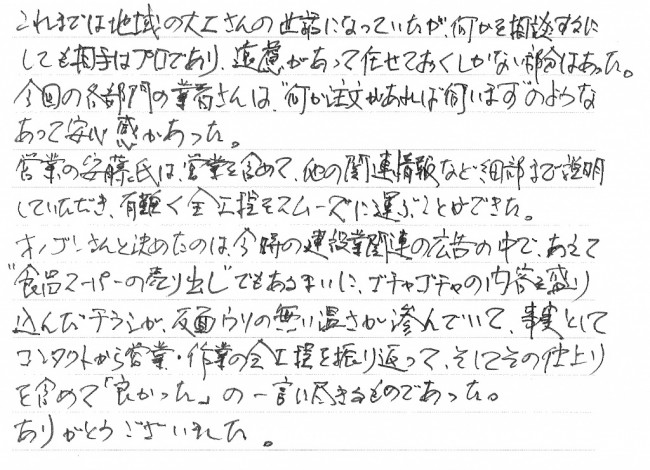 これまでは地域の大工さんの世話になっていたが、何かを相談するに
しても相手はプロであり、遠慮があって任せておくしかない部分はあった。
今回の各部門の業者さんは、"何か注文があれば伺います"のような
あって安心感があった。
営業の安藤氏は、営業を含めて、他の関連情報など細部まで説明
していただき、有難く全工程をスムーズに運ぶことができた。
オノゴーさんと決めたのは、今時の建設業関連の広告の中で、あえて
"食品スーパーの売り出し"でもあるまいに、ゴチャゴチャの内容を盛り
込んだチラシが、反面ウソの無い温さが滲んでいて、事実として
コンタクトから営業・作業の全工程を振り返って、そしてその仕上り
を含めて「良かった」の一言に尽きるものであった。
ありがとうございました。